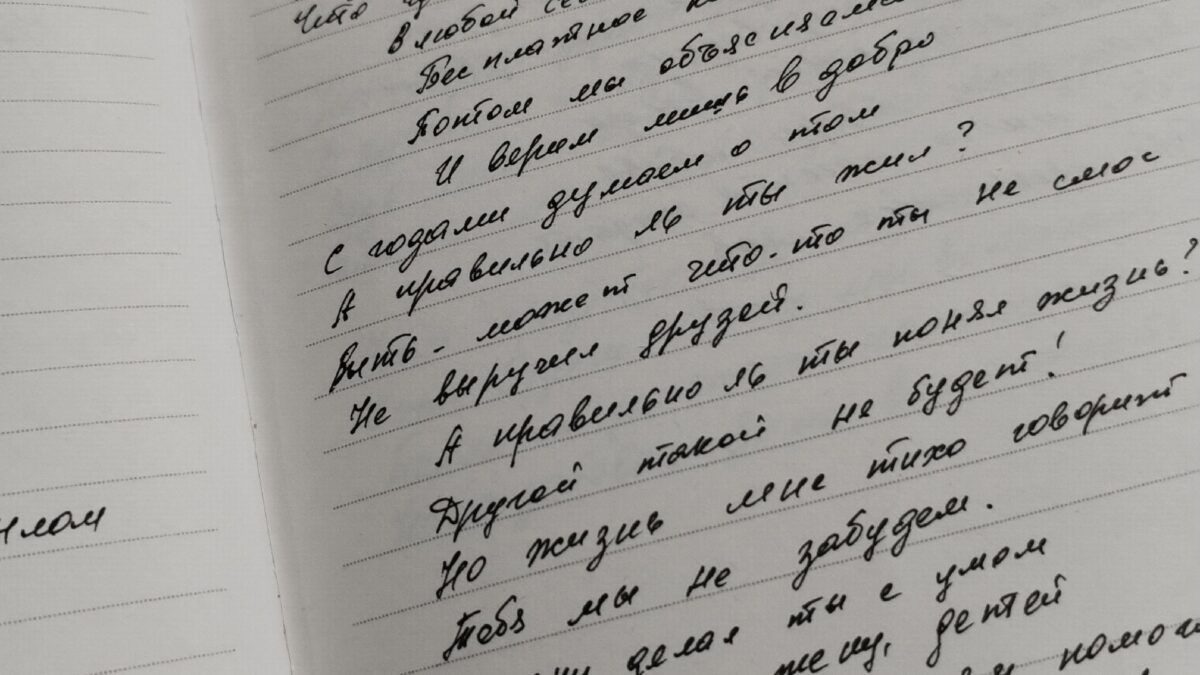 илом
Что
в любой
Бесплатное
Потом мы объясн
И верим лишь в добро
С годами думаем о том
А правильно ль ты жил?
Быть-может что-то ты не смог
Не выручил друзей.
А правильно ль ты понял жизнь?
Другой такой не будет!
Но жизнь мне тихо говорит
Тебя мы не забудем.
делал ты с умом
жену, детей
помог